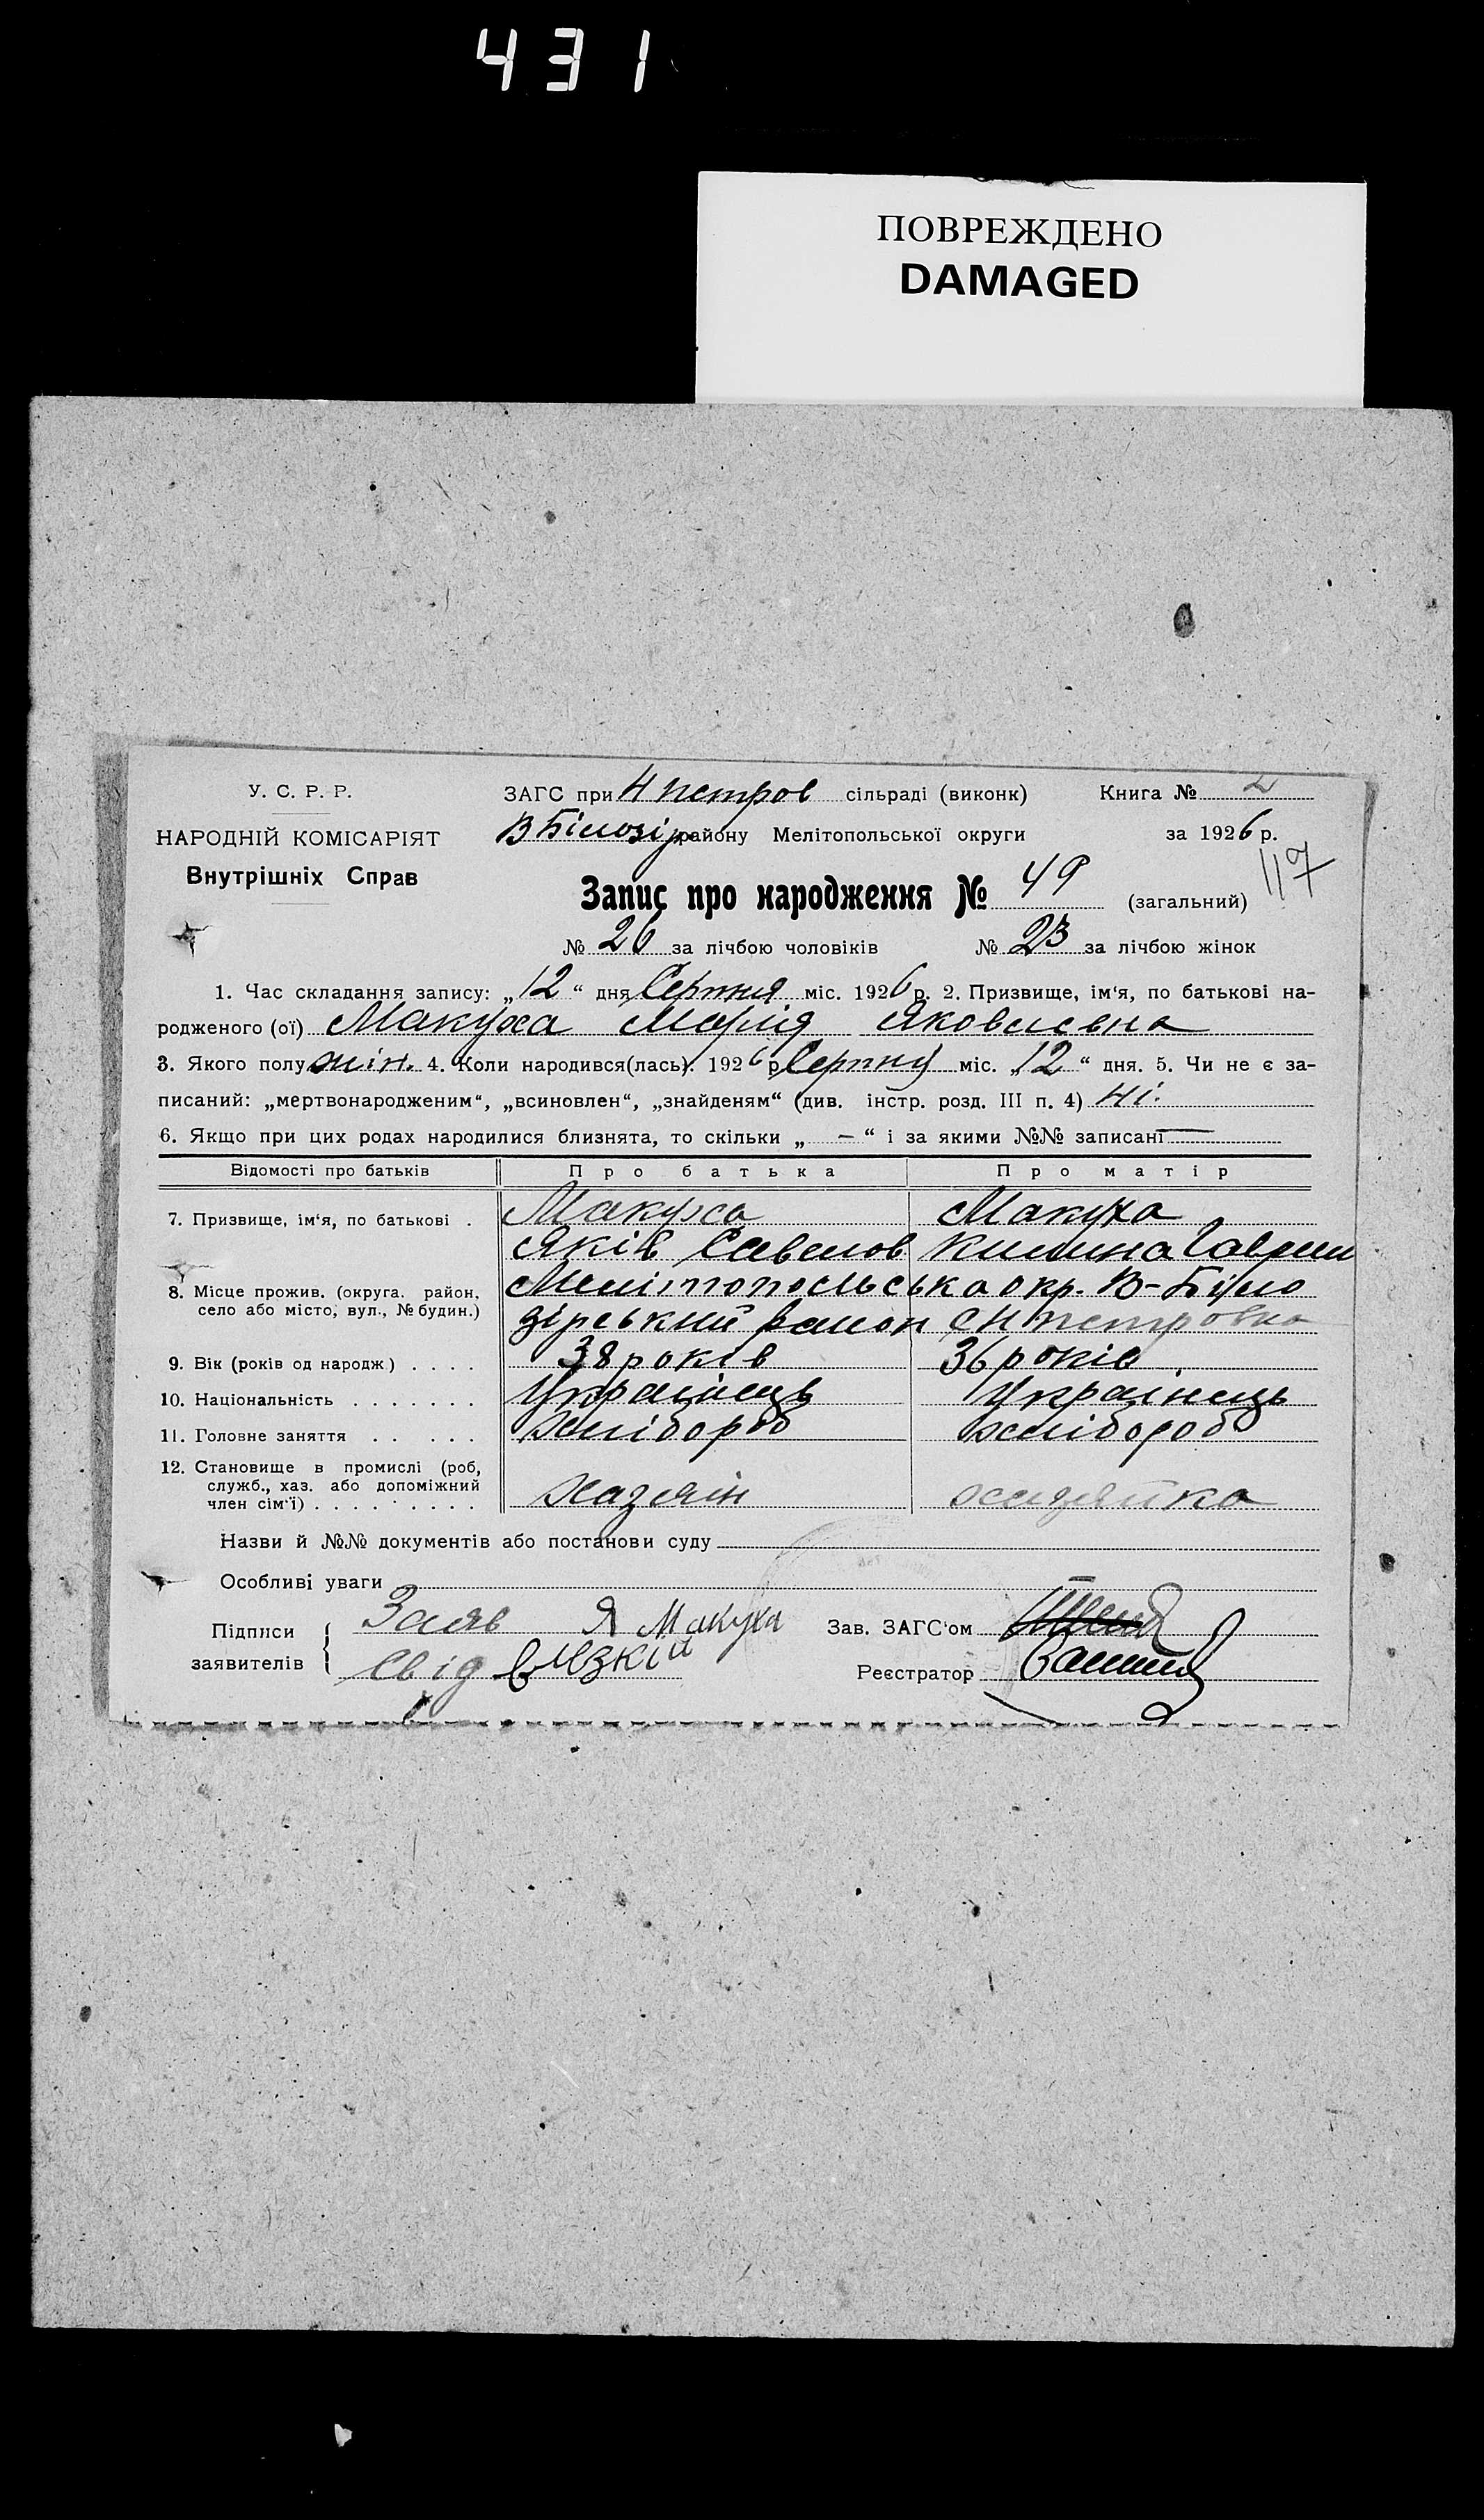 431
ПОВРЕЖДЕНО
DAMAGED
У. С. Р. Р.
НАРОДНІЙ КОМІСАРІЯТ
Внутрішніх Справ
ЗАГС при Н петров сільраді (виконк) Книга № 2
В Білозір району Мелітопольської округи за 1926 р.
117
Запис про народження № 49 (загальний)
№ 26 за лічбою чоловіків № 23 за лічбою жінок
1. Час складання запису: „12“ дня Серпня міс. 1926 р. 2. Призвище, ім'я, по батькові на-
родженого (ої) Макуха Марія Яковлевна
3. Якого полу жін. 4. Коли народився(лась). 1926 р Серпня міс. „12“ дня. 5. Чи не є за-
писаний: „мертвонародженим“, „всиновлен“, „знайденям“ (див. інстр. розд. III п. 4) Ні.
6. Якщо при цих родах народилися близнята, то скільки „ — “ і за якими №№ записані —
Відомості про батьків Про батька Про матір
7. Призвище, ім'я, по батькові . Макуха Макуха
Яків Савелов Килина Гаврил
8. Місце прожив. (округа. район, село або місто, вул., № будин.) Мелітопольська окр. В-Біло
зірський район с Н петровка
9. Вік (років од народж) . . . . 38 років 36 років
10. Національність . . . . . . . Українець Українець
11. Головне заняття . . . . . хлібороб хлібороб
12. Становище в промислі (роб,
служб., хаз. або допоміжний
член сім'ї) . . . . . . . . . хазяін хазяйка
Назви й №№ документів або постанови суду
Особливі уваги
Підписи заявителів
Заяв Я Макуха Зав. ЗАГС'ом
Свід Реєстратор